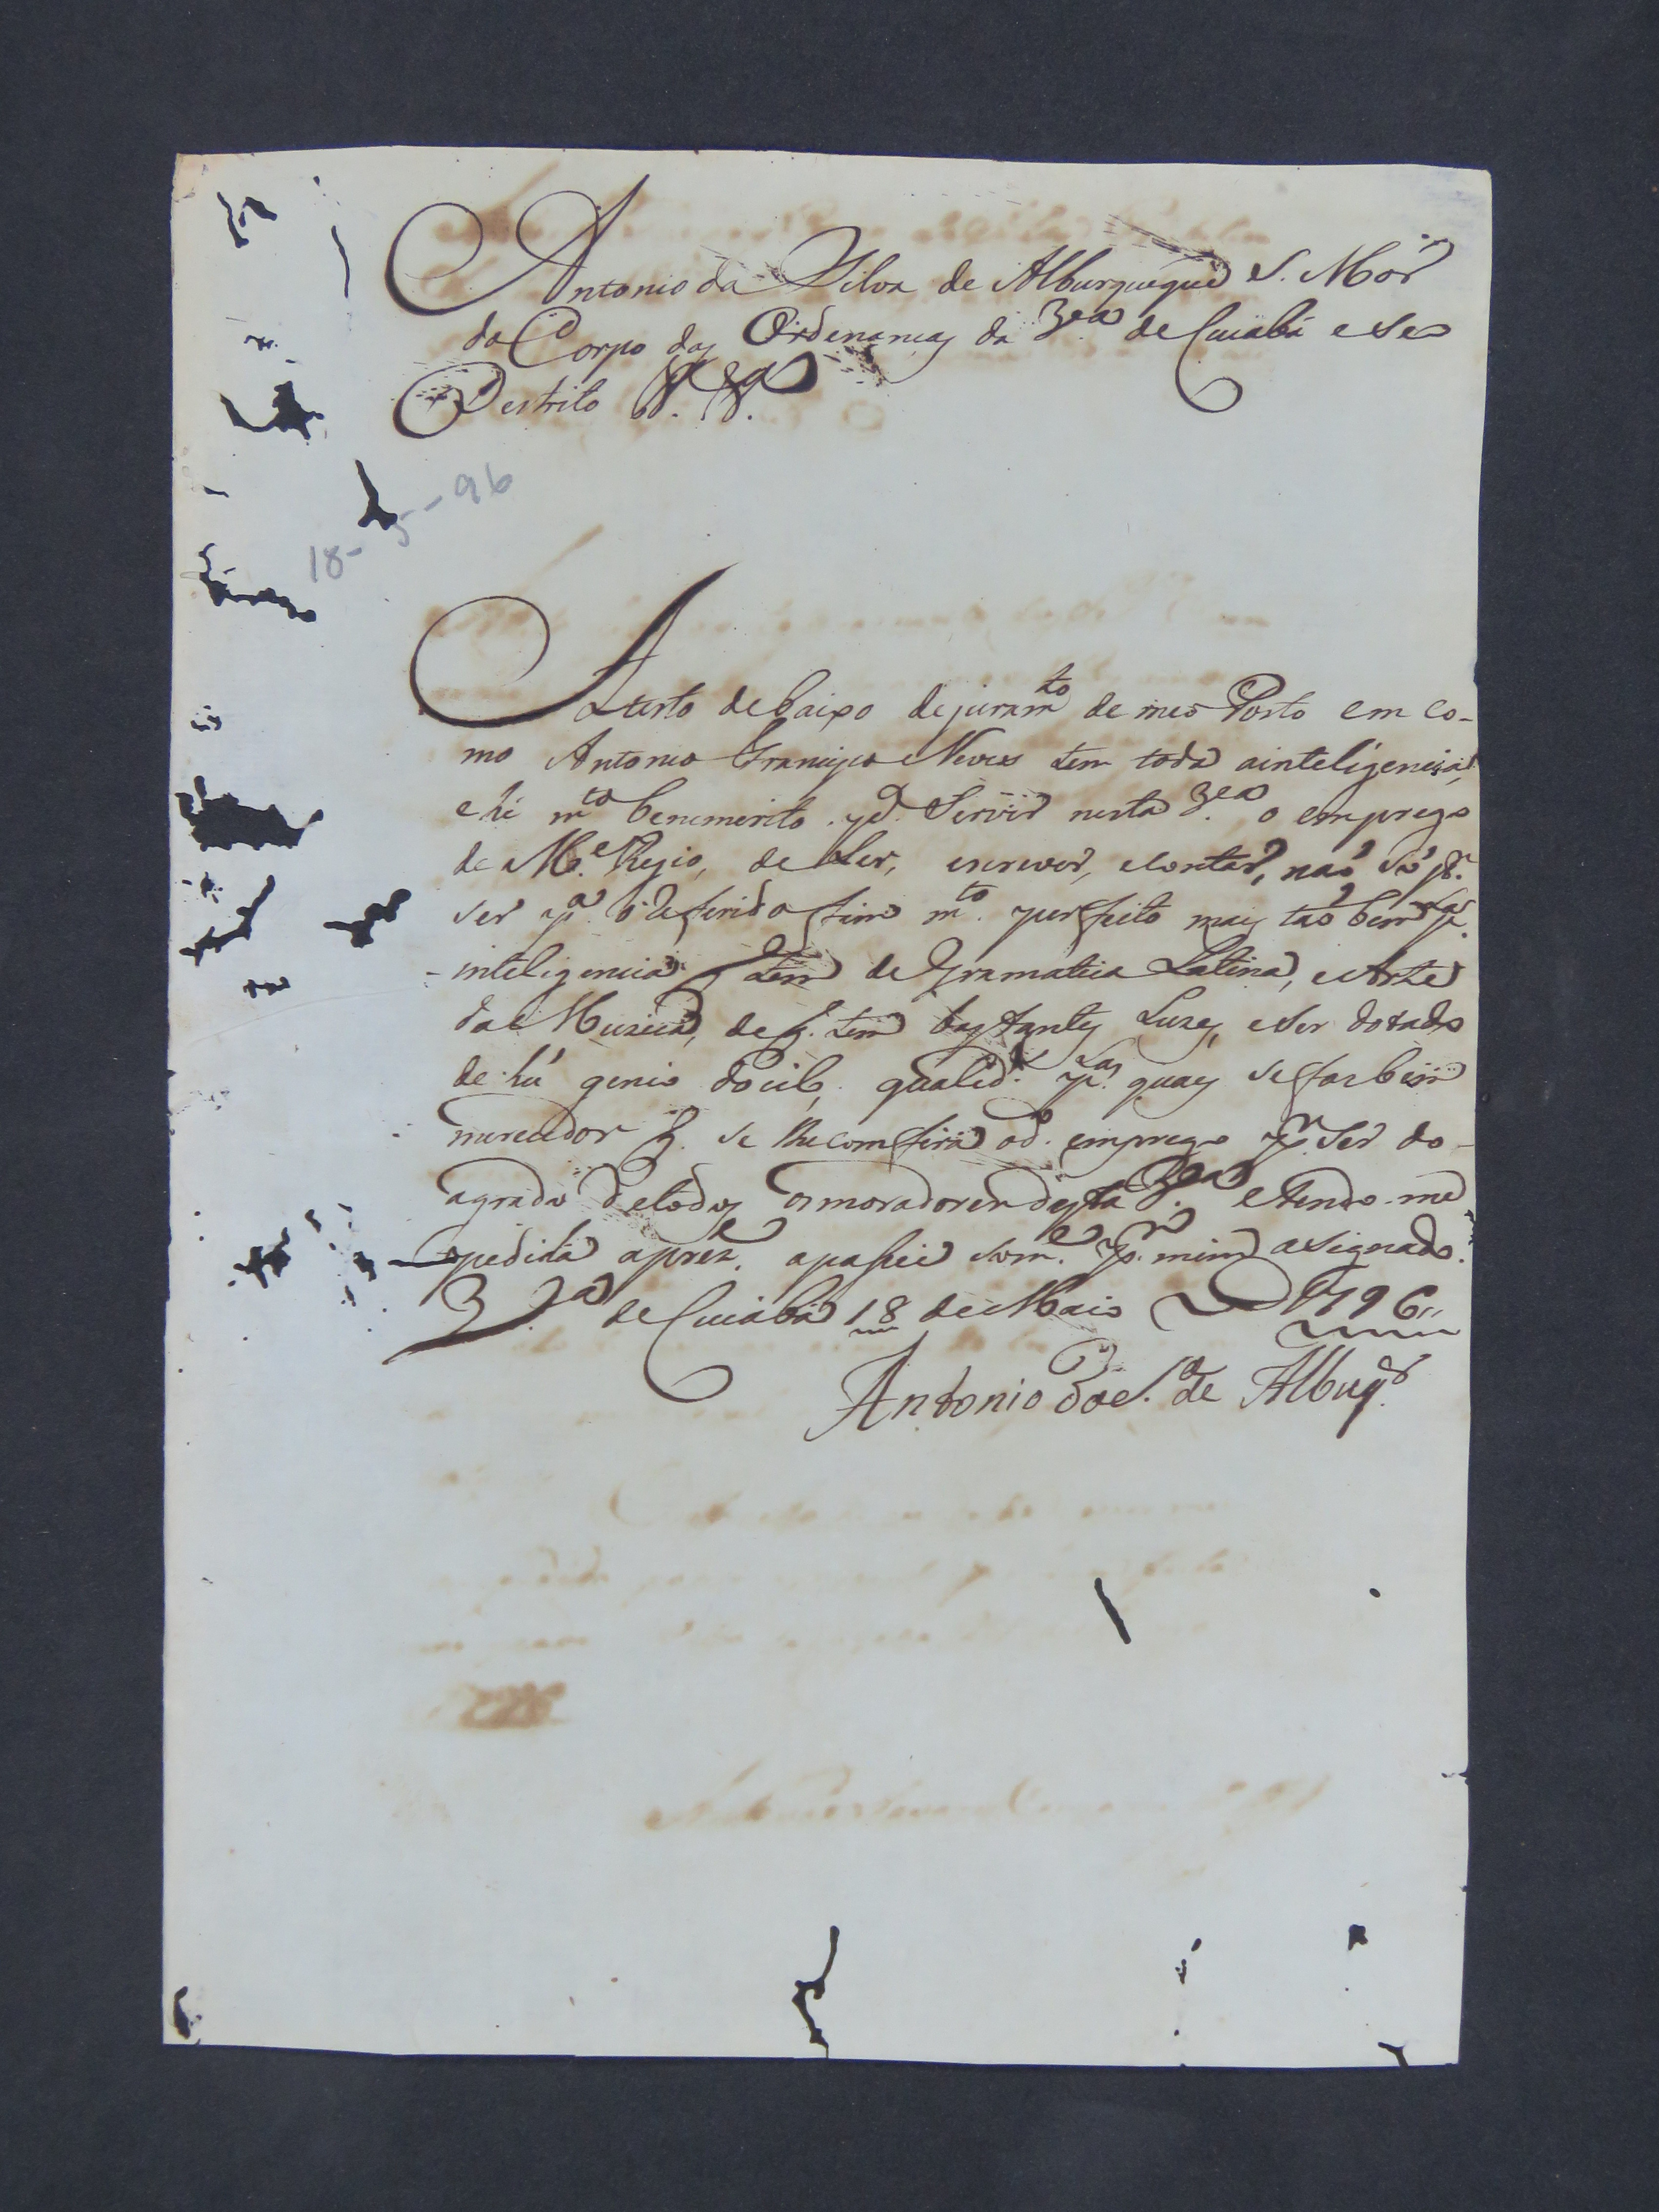 Antonio da Silva de Alburqueque S. Mór
do Corpo das Ordenancas da Va de Cuiabá e seo
Destrito &. &.
18-5-96
Atesto debaixo de juramto de meo Posto em co-
mo Antonio Francisco Neves tem toda ainteligencia,
e hé mto benemerito pa. Servir nesta Va o emprego
de Me. Regio, de Ler, escrever, e contar, naó só pr.
ser pa. o referido fim mto. perfeito mas taó bem pla.
inteligencia q tem de Gramatica Latina, e Arte
da Muzica, de q. tem bastantes Luzes, e ser dotado
de hú genio docil, qualide. plas. quaes se faz bem
merecedor q. se lhe comfira o d.o emprego pr. Ser do
agrado de todos os moradores desta Va. e tendo-me
pedida a prez.e apasei som.e pr. mim asignado.
Va. de Cuiabá 18 de Maio de 1796,,
Antonio da S.a de Albuq.e